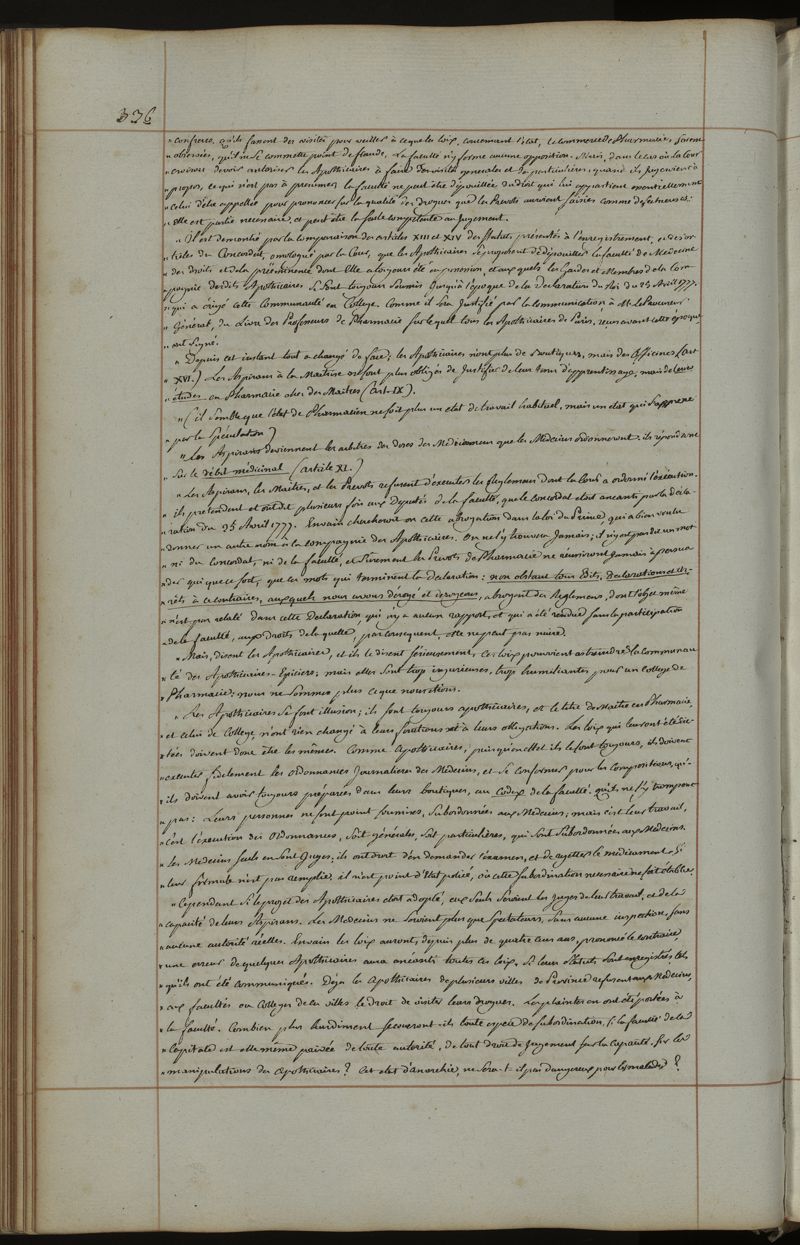 336
" confreres, qu'ils fassent des visites pour veiller à ce que les loix, concernant l'état, le commerce de Pharmacie, soient
" observées, qu'il ne se commette point de fraude. La faculté n'y forme aucune opposition. Mais, dans le cas où la Cour
" croiroit devoir autoriser les Apothicaires à faire des visites generales et de particulieres, quand ils jugeroient à
" propos, ce qui n'est pas à presumer, la faculté ne peut être dépouillée du droit qui lui appartient essentiellement
" celui d'être appellée pour prononcer sur la qualité des drogues que les Prevots auroient saisies comme defectueuses:
" Elle est partie necessaire, et peut être la seule competente au Jugement.
" Il est demontré par la comparaison des articles XIII et XIV des Statuts presentés à l'enregistrement, et des ar-
" ticles du Concordat, omologué par la Cour, que les Apothicaires se proposent de dépouiller la faculté de Medecine
" des droits et de la prééminence dont Elle a toujours été en possession, et auxquels les Gardes et Membres de la Com-
" pagnie desdits Apothicaires se sont toujours soumis jusqu'à l'époque de la Declaration du Roi du 25 Avril 1777.
" qui a érigé cette Communauté en College. Comme il sera justifié par la communication à M. le Procureur
" Général, du Livre des Professeurs de Pharmacie sur lequel tous les Apothicaires de Paris, reçus avant cette époque,
" ont signé.
" Depuis cet instant tout a changé de face; les Apothicaires n'ont plus de Boutiques, mais des Officines (art.
" XVI.) Les Aspirans à la Maitrise ne sont plus obligés de justifier de leur tems d'apprentissage, mais de leurs
" études en Pharmacie chez des Maitres (art. IX).
" (il semble que l'état de Pharmacien ne soit plus un etat de travail habituel, mais un etat qui s'apprene
" par la Spéculation)
" Les Aspirans deviennent les arbitres des doses des Médicamens que les Médecins ordonneront. ils répondront
" sur le débit médicinal (article XI.)
" Les Aspirans, les Maitres, et les Prevots refusent d'executer les Reglemens dont la Cour a ordonné l'execution.
" ils pretendent et ont dit plusieurs fois aux Deputés de la faculté, que le concordat etoit aneanti par la Décla-
" ration du 25 Avril 1777. Envain chercheroit on cette abrogation dans la loi du Prince qui a bien voulu
" donner un autre nom à la compagnie des Apothicaires. On ne l'y trouvera jamais; il n'y est pas dit un mot
" ni du concordat, ni de la faculté, et surement les Prevots de Pharmacie ne réussiront jamais à persua-
" der qui que ce soit, que ces mots qui terminent la Declaration: non obstant tous Edits, declarations et ar-
" rêts à ce contraires, auxquels nous avons dérogé et dérogeons, abrogent des Reglemens, dont l'objet même
" n'est pas relaté dans cette Declaration, qui n'y a aucun rapport, et qui a été rendue sans la participation
" de la faculté, aux Droits de laquelle, par consequent, elle ne peut pas nuire.
" Mais, disent les Apothicaires, et ils le disent sérieusement, ces loix pouvoient astreindre la communau-
" té des Apothicaires-Epiciers; mais elles sont trop injurieuses, trop humiliantes pour un College de
" Pharmacie; nous ne sommes plus ce que nous étions.
" Les Apothicaires se font illusion; ils sont toujours apothicaires, et le titre de Maitre en Pharmacie,
" et celui de College, n'ont rien changé à leurs fonctions et à leurs obligations. Les loix qui leur ont été dic-
" tées doivent donc être les mêmes. Comme apothicaires, puis qu'en effet ils le sont toujours, ils doivent
" executer fidelement les ordonnances journalieres des Médecins, et se conformer pour les compositions, qu'-
" ils doivent avoir toujours préparées dans leurs boutiques, au Codex de la faculté. qu'ils ne s'y trompent
" pas: Leurs personnes ne sont point soumises, subordonnées aux Medecins; mais c'est leur travail,
" c'est l'execution des Ordonnances, soit générales, soit particulières, qui sont subordonnées aux Medecins.
" les Medecins seuls en sont juges; ils ont droit d'en demander l'examen, et de rejetter le medicament si
" leur formule n'est pas remplie. il n'est point d'Etat policé, où cette subordination necessaire ne soit établie.
" Cependant si le projet des Apothicaires etoit adopté, eux seuls seroient les Juges de leur travail, et de la
" capacité de leurs Aspirans. Les Médecins ne seroient plus que spectateurs, sans aucune inspection, sans
" aucune autorité réelles. Envain les loix auront, depuis plus de quatre cens ans, prononcé le contraire,
" une erreur de quelques Apothicaires aura anéanti toutes ces loix, si leurs Statuts sont enregistrés, tels
" qu'ils ont été communiqués. Déja les apothicaires de plusieurs villes de Province refusent aux Medecins,
" aux facultés ou Colleges de ces villes le droit de visiter leurs drogues. Les plaintes en ont été portées à
" la faculté. Combien plus hardiment secoueront-ils toute espece de subordination, si la faculté de la
" Capitale est elle même privée de toute autorité, de tout droit de Jugement sur la capacité, sur les
" manipulations des apothicaires? Cet etat d'anarchie, ne sera-t-il pas dangereux pour les malades?